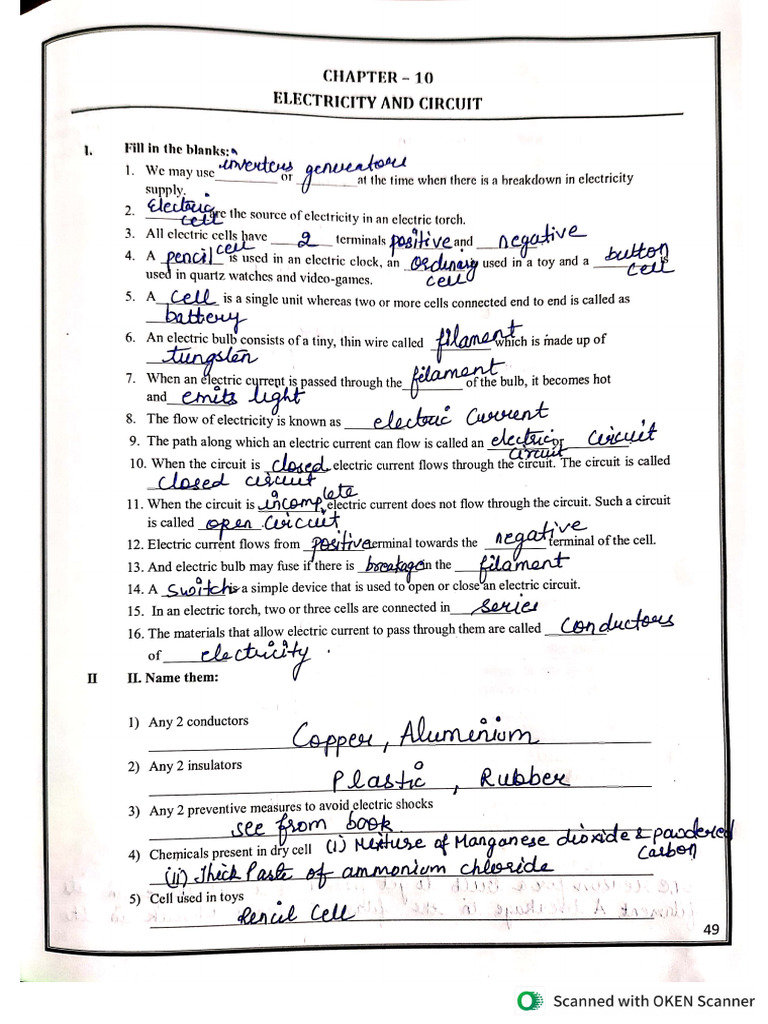 CHAPTER – 10
ELECTRICITY AND CIRCUIT
I. Fill in the blanks:
1. We may use inverters or generators at the time when there is a breakdown in electricity
supply.
2. Electric cell are the source of electricity in an electric torch.
3. All electric cells have 2 terminals positive and negative
4. A pencil cell is used in an electric clock, an ordinary cell used in a toy and a button cell is
used in quartz watches and video-games.
5. A cell is a single unit whereas two or more cells connected end to end is called as
battery
6. An electric bulb consists of a tiny, thin wire called filament which is made up of
tungsten
7. When an electric current is passed through the filament of the bulb, it becomes hot
and emits light
8. The flow of electricity is known as electric current
9. The path along which an electric current can flow is called an electric circuit or circuit
10. When the circuit is closed electric current flows through the circuit. The circuit is called
closed circuit
11. When the circuit is incomplete electric current does not flow through the circuit. Such a circuit
is called open circuit
12. Electric current flows from positive terminal towards the negative terminal of the cell.
13. And electric bulb may fuse if there is breakage in the filament
14. A switch is a simple device that is used to open or close an electric circuit.
15. In an electric torch, two or three cells are connected in series
16. The materials that allow electric current to pass through them are called conductors
of electricity.
II II. Name them:
1) Any 2 conductors
Copper, Aluminium
2) Any 2 insulators
Plastic, Rubber
3) Any 2 preventive measures to avoid electric shocks
see from book
4) Chemicals present in dry cell (i) Mixture of Manganese dioxide & powdered carbon
(ii) Thick Paste of ammonium chloride
5) Cell used in toys
Pencil Cell
49
Scanned with OKEN Scanner